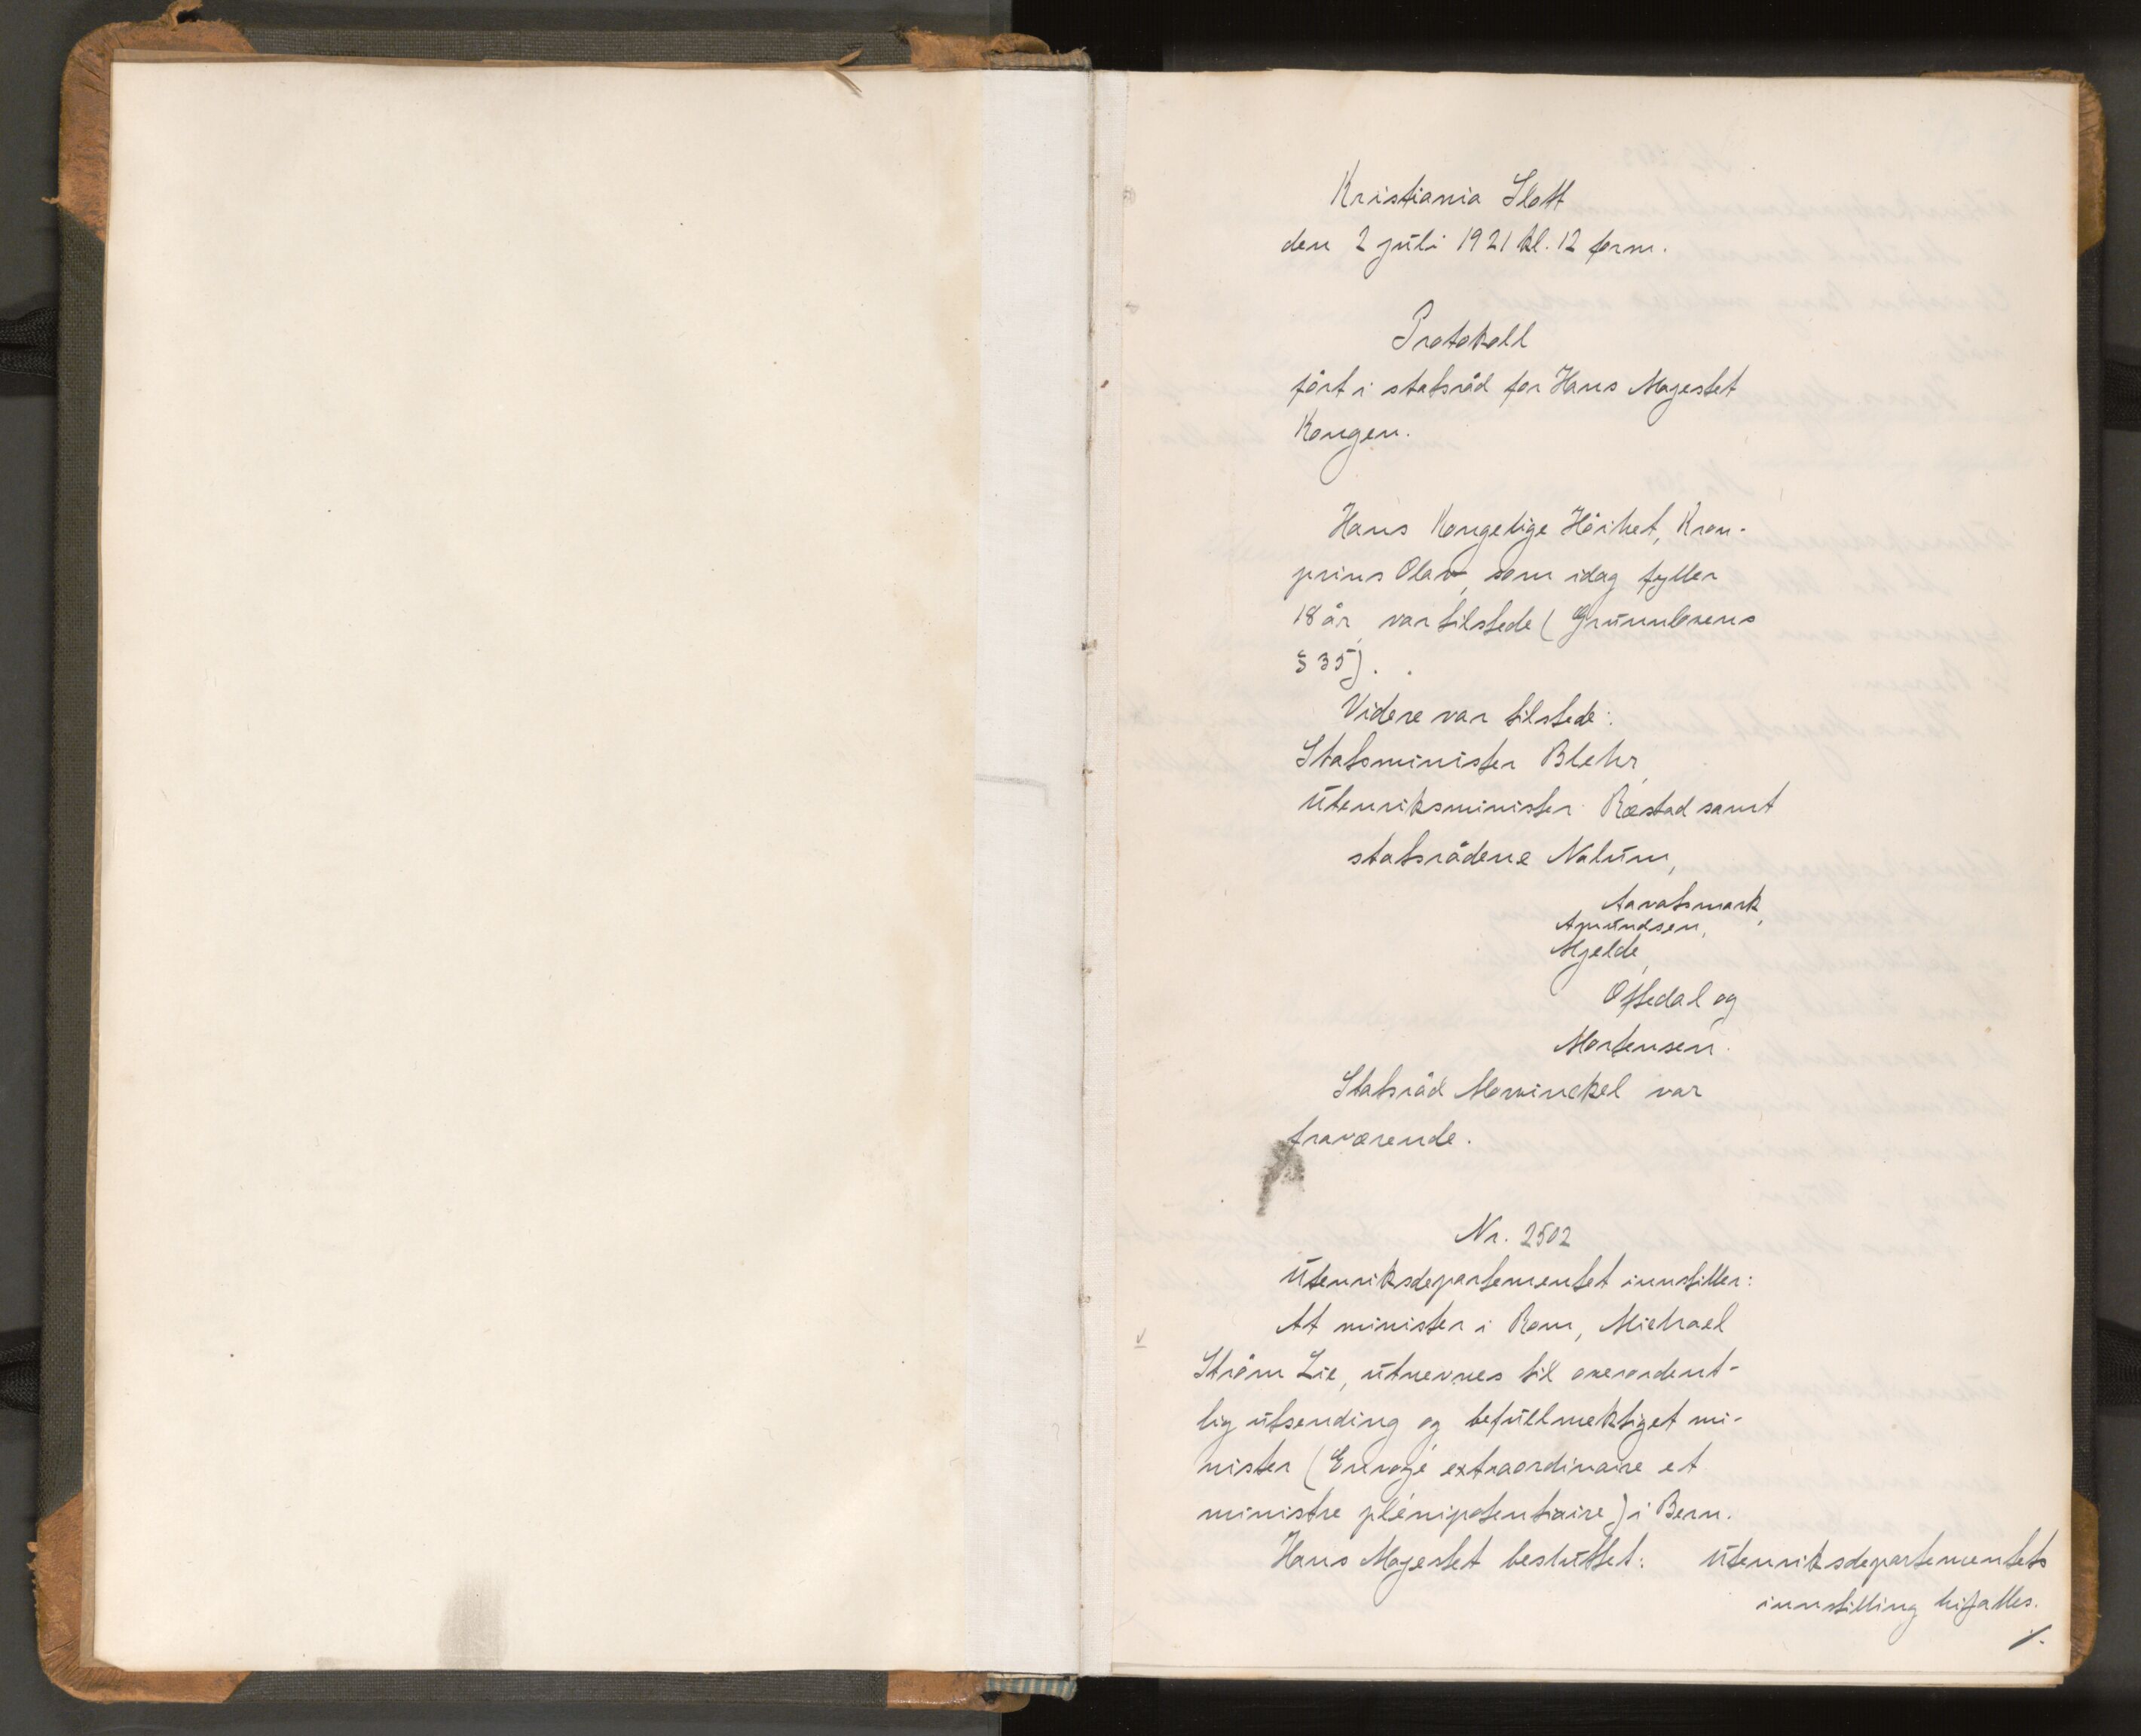 Kristiania Slott
den 2 juli 1921 kl. 12 form.
Protokoll
ført i statsråd for Hans Majestet
Kongen.
Hans Kongelige Höihet, Kron-
prins Olav, som idag fyller
18 år, var tilstede (Grunnlovens
§ 35).
Videre var tilstede:
Statsminister Blehr,
Utenriksminister Ræstad samt
statsrådene Nalum,
Aavatsmark,
Amundsen,
Mjelde,
Oftedal og
Mortensen.
Statsråd Mowinckel var
fraværende.
Nr. 2502
Utenriksdepartementet innstiller:
At minister i Rom, Michael
Ström Lie, utnevnes til overordent-
lig utsending og befullmektiget mi-
nister (Envoyé extraordinaire et
ministre plénipotentiaire) i Bern.
Hans Majestet besluttet: Utenriksdepartementets
innstilling bifalles.
./.